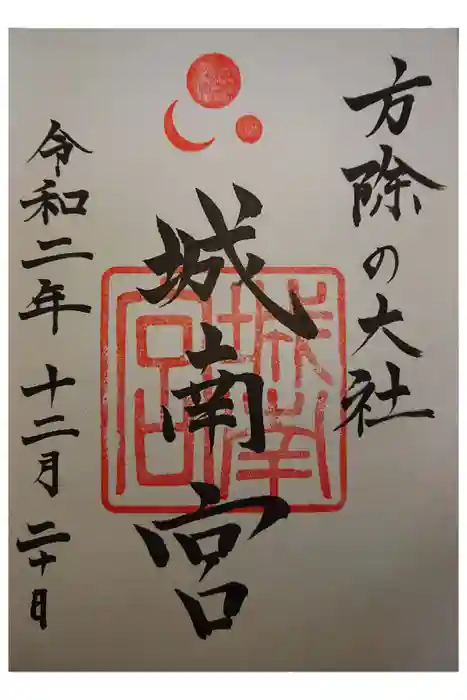 方除の大社
城南宮
城南宮
令和二年十二月二十日